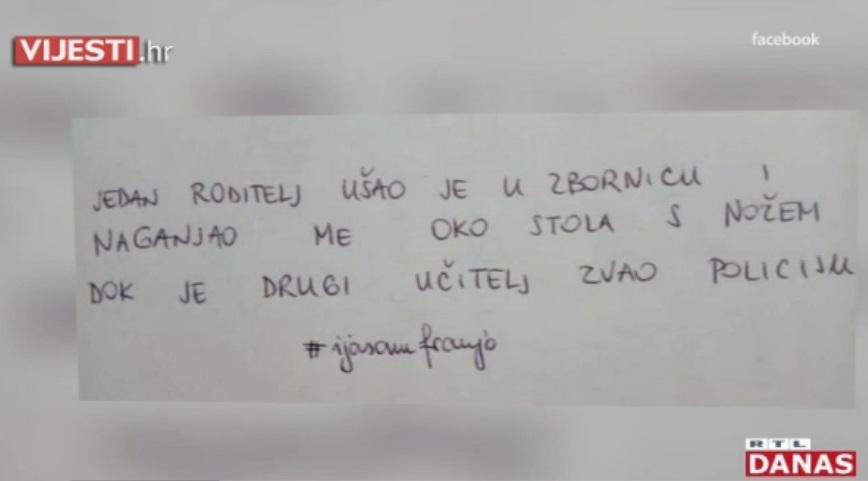 VIJESTI.hr
facebook
JEDAN RODITELJ UŠAO JE U ZBORNICU I
NAGANJAO ME OKO STOLA S NOŽEM
DOK JE DRUGI UČITELJ ZVAO POLICIJU
#ijasamfranjo
RTL
DANAS